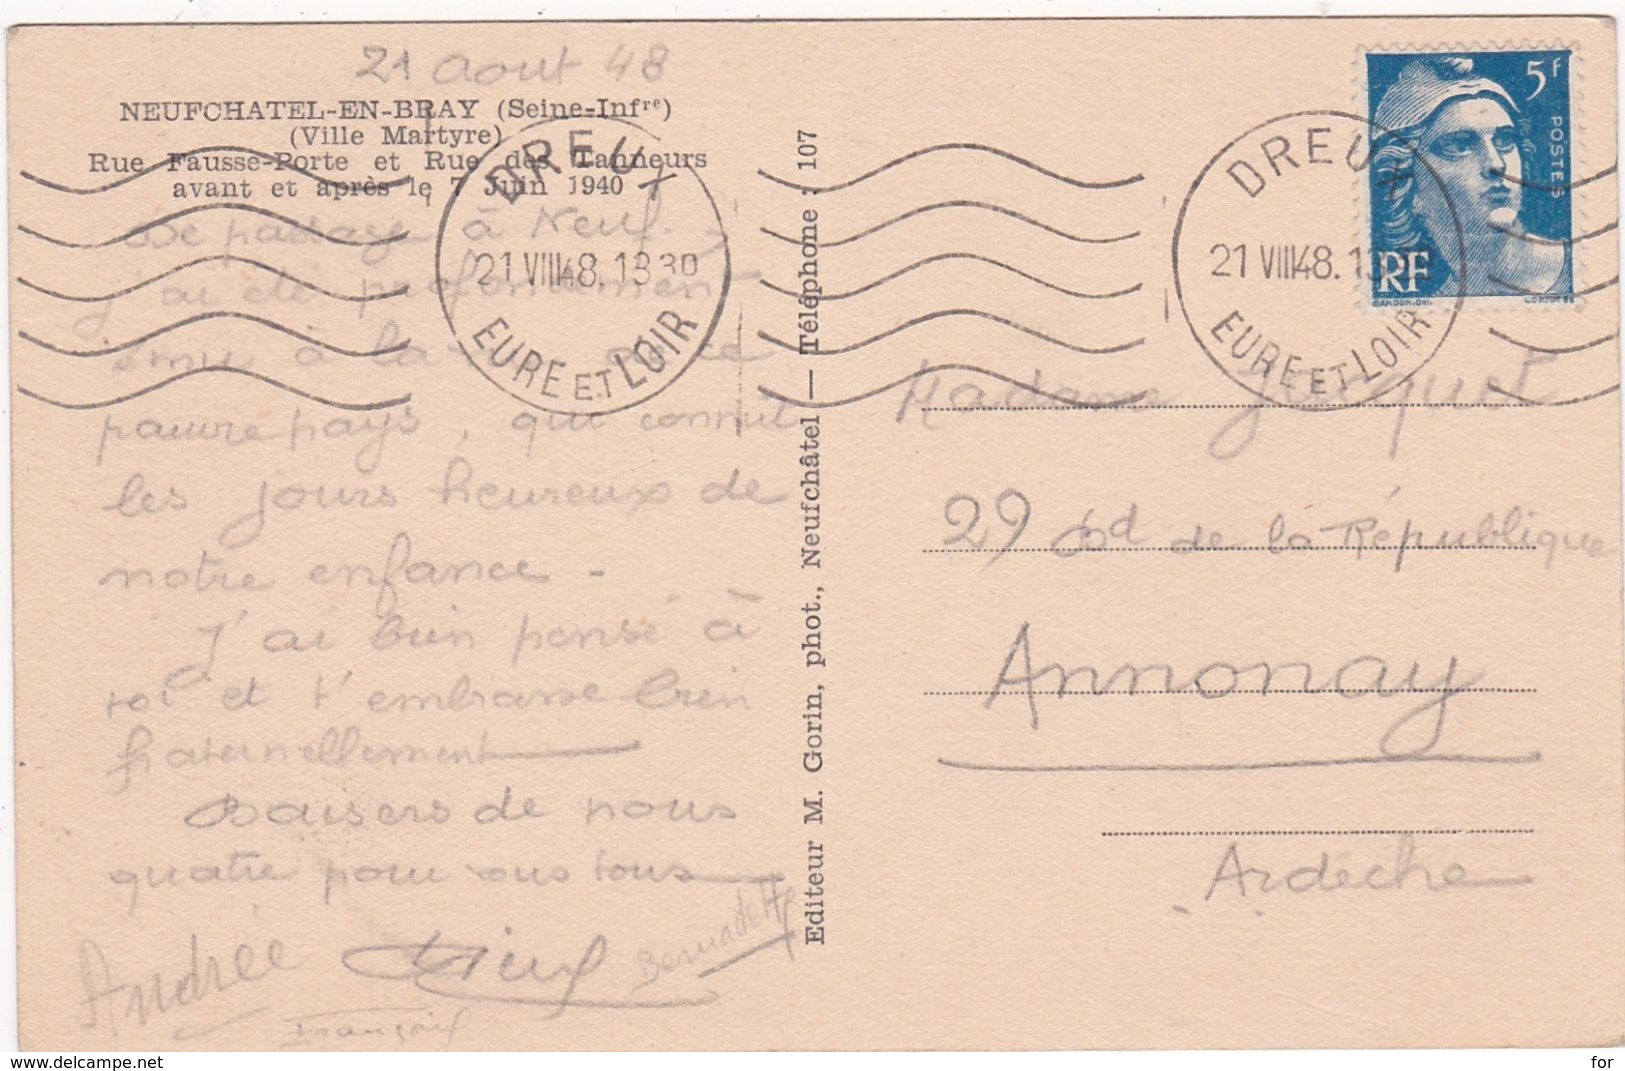 21 Aout 48
NEUFCHATEL-EN-BRAY (Seine-Infre)
(Ville Martyre)
Rue Fausse-Porte et Rue des Tanneurs
avant et après le 7 Juin 1940
De passage à Neuf. -
j'ai été profondément
émue à la de ce
pauvre pays, qui connut
les jours heureux de
notre enfance -
J'ai bien pensé à
toi et t'embrasse bien
fraternellement
Baisers de nous
quatre pour vous tous
Andrée
Bernadette
François
DREUX
21 VIII 48. 13 30
EURE ET LOIR
Editeur M. Gorin, phot., Neufchâtel — Téléphone : 107
DREUX
21 VIII 48. 13
EURE ET LOIR
5F
POSTES
RF
GANDON. Del.
CORTOT SC
Madame Jacquot
29 Bd de la République
Annonay
Ardèche
www.delcampe.net
for